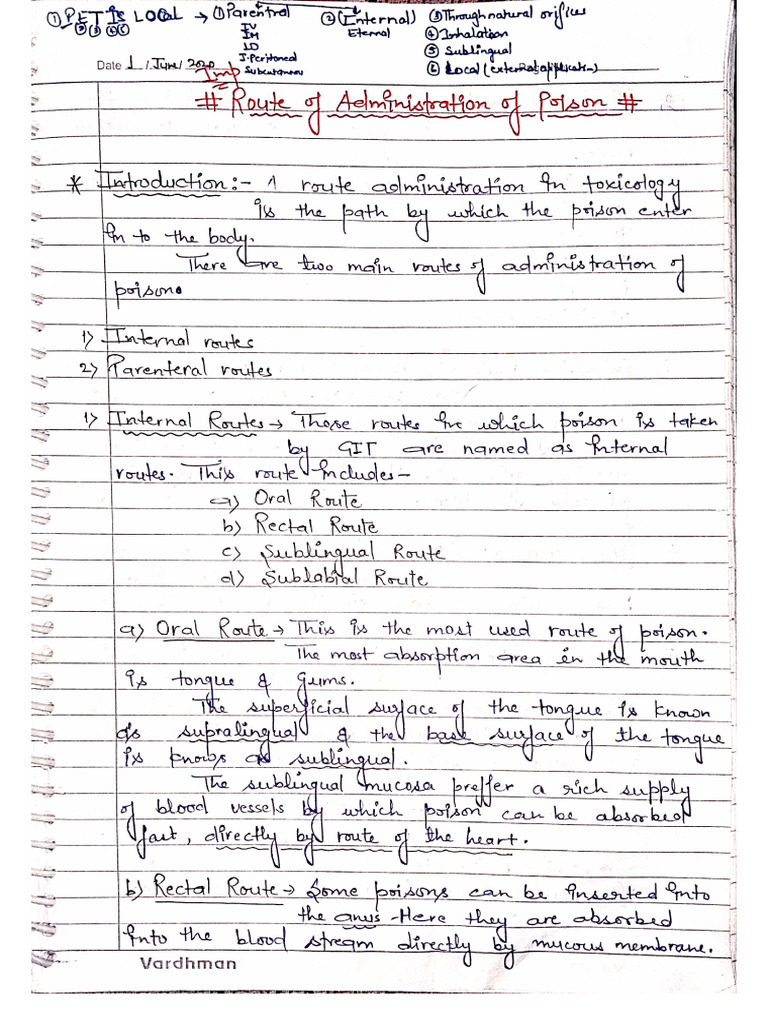 ① PET IS LOCAL → ① Parentral ② (Internal) ③ Through natural orifices
② ③ ④ ⑤ IV Eternal ④ Inhalation
IM ⑤ Sublingual
ID ⑥ Local (external application)
I.Peritoneal
Subcutaneous
Date 1 / June / 2020
Imp
# Route of Administration of Poison #
* Introduction :- A route administration in toxicology
is the path by which the poison enter
in to the body.
There are two main routes of administration of
poison.
1) Internal routes
2) Parenteral routes
1) Internal Routes → Those routes in which poison is taken
by GIT are named as internal
routes. This route includes –
a) Oral Route
b) Rectal Route
c) Sublingual Route
d) Sublabial Route
a) Oral Route → This is the most used route of poison.
The most absorption area in the mouth
is tongue & gums.
The superficial surface of the tongue is known
as supralingual & the base surface of the tongue
is known as sublingual.
The sublingual mucosa preffer a rich supply
of blood vessels by which poison can be absorbed
fast, directly by route of the heart.
b) Rectal Route → Some poisons can be inserted into
the anus - Here they are absorbed
into the blood stream directly by mucous membrane.
Vardhman